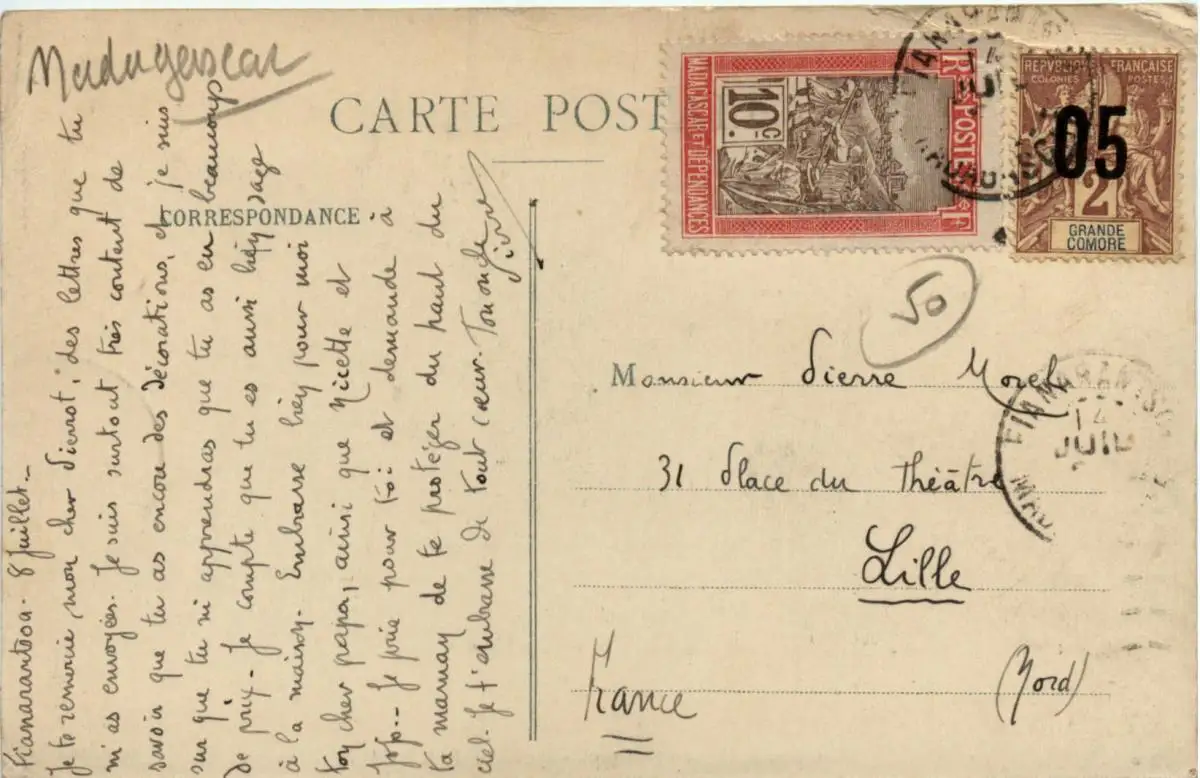 Madagascar
CARTE POST
CORRESPONDANCE
Fianarantsoa - 8 Juillet -
Je te remercie, mon cher Pierrot, des lettres que tu
m'as envoyées. Je suis surtout très content de
savoir que tu as encore des décorations, et je suis
sur que tu m'apprendras que tu as eu beaucoup
de prix - Je compte que tu es aussi bien sage
à la maison. Embrasse bien pour moi
ton cher papa, ainsi que Nicette et
Jojo. - Je prie pour toi et demande à
ta maman de te protéger du haut du
ciel. Je t'embrasse de tout cœur. Ton oncle
MADAGASCAR ET DÉPENDANCES
10 c.
POSTES
RF
RÉPUBLIQUE FRANÇAISE
COLONIES POSTES
05
2
GRANDE
COMORE
FIANARANTSOA
14
JUIL
MADAGASCAR
50
Monsieur Pierre Morel
31 Place du Théâtre
Lille
France
(Nord)
FIANARANTSOA
14
JUIL